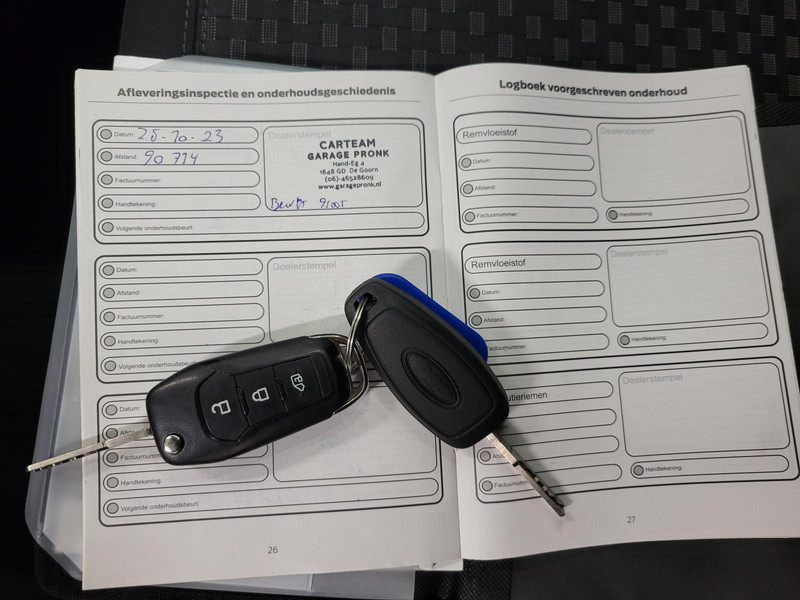 Afleveringsinspectie en onderhoudsgeschiedenis
Datum: 25-10-23
Afstand: 90 774
Factuurnummer:
Handtekening:
Volgende onderhoudsbeurt:
Dealerstempel
CARTEAM
GARAGE PRONK
Hand-Eg 4
1648 GD De Goorn
(06)-46528609
www.garagepronk.nl
Beurt groot
Datum:
Afstand:
Factuurnummer:
Handtekening:
Volgende onderhoudsbeurt:
Dealerstempel
Datum:
Handtekening:
Volgende onderhoudsbeurt:
26
Logboek voorgeschreven onderhoud
Remvloeistof
Datum:
Afstand:
Factuurnummer:
Dealerstempel
Handtekening:
Remvloeistof
Datum:
Afstand:
Dealerstempel
Handtekening:
Dealerstempel
Handtekening:
27